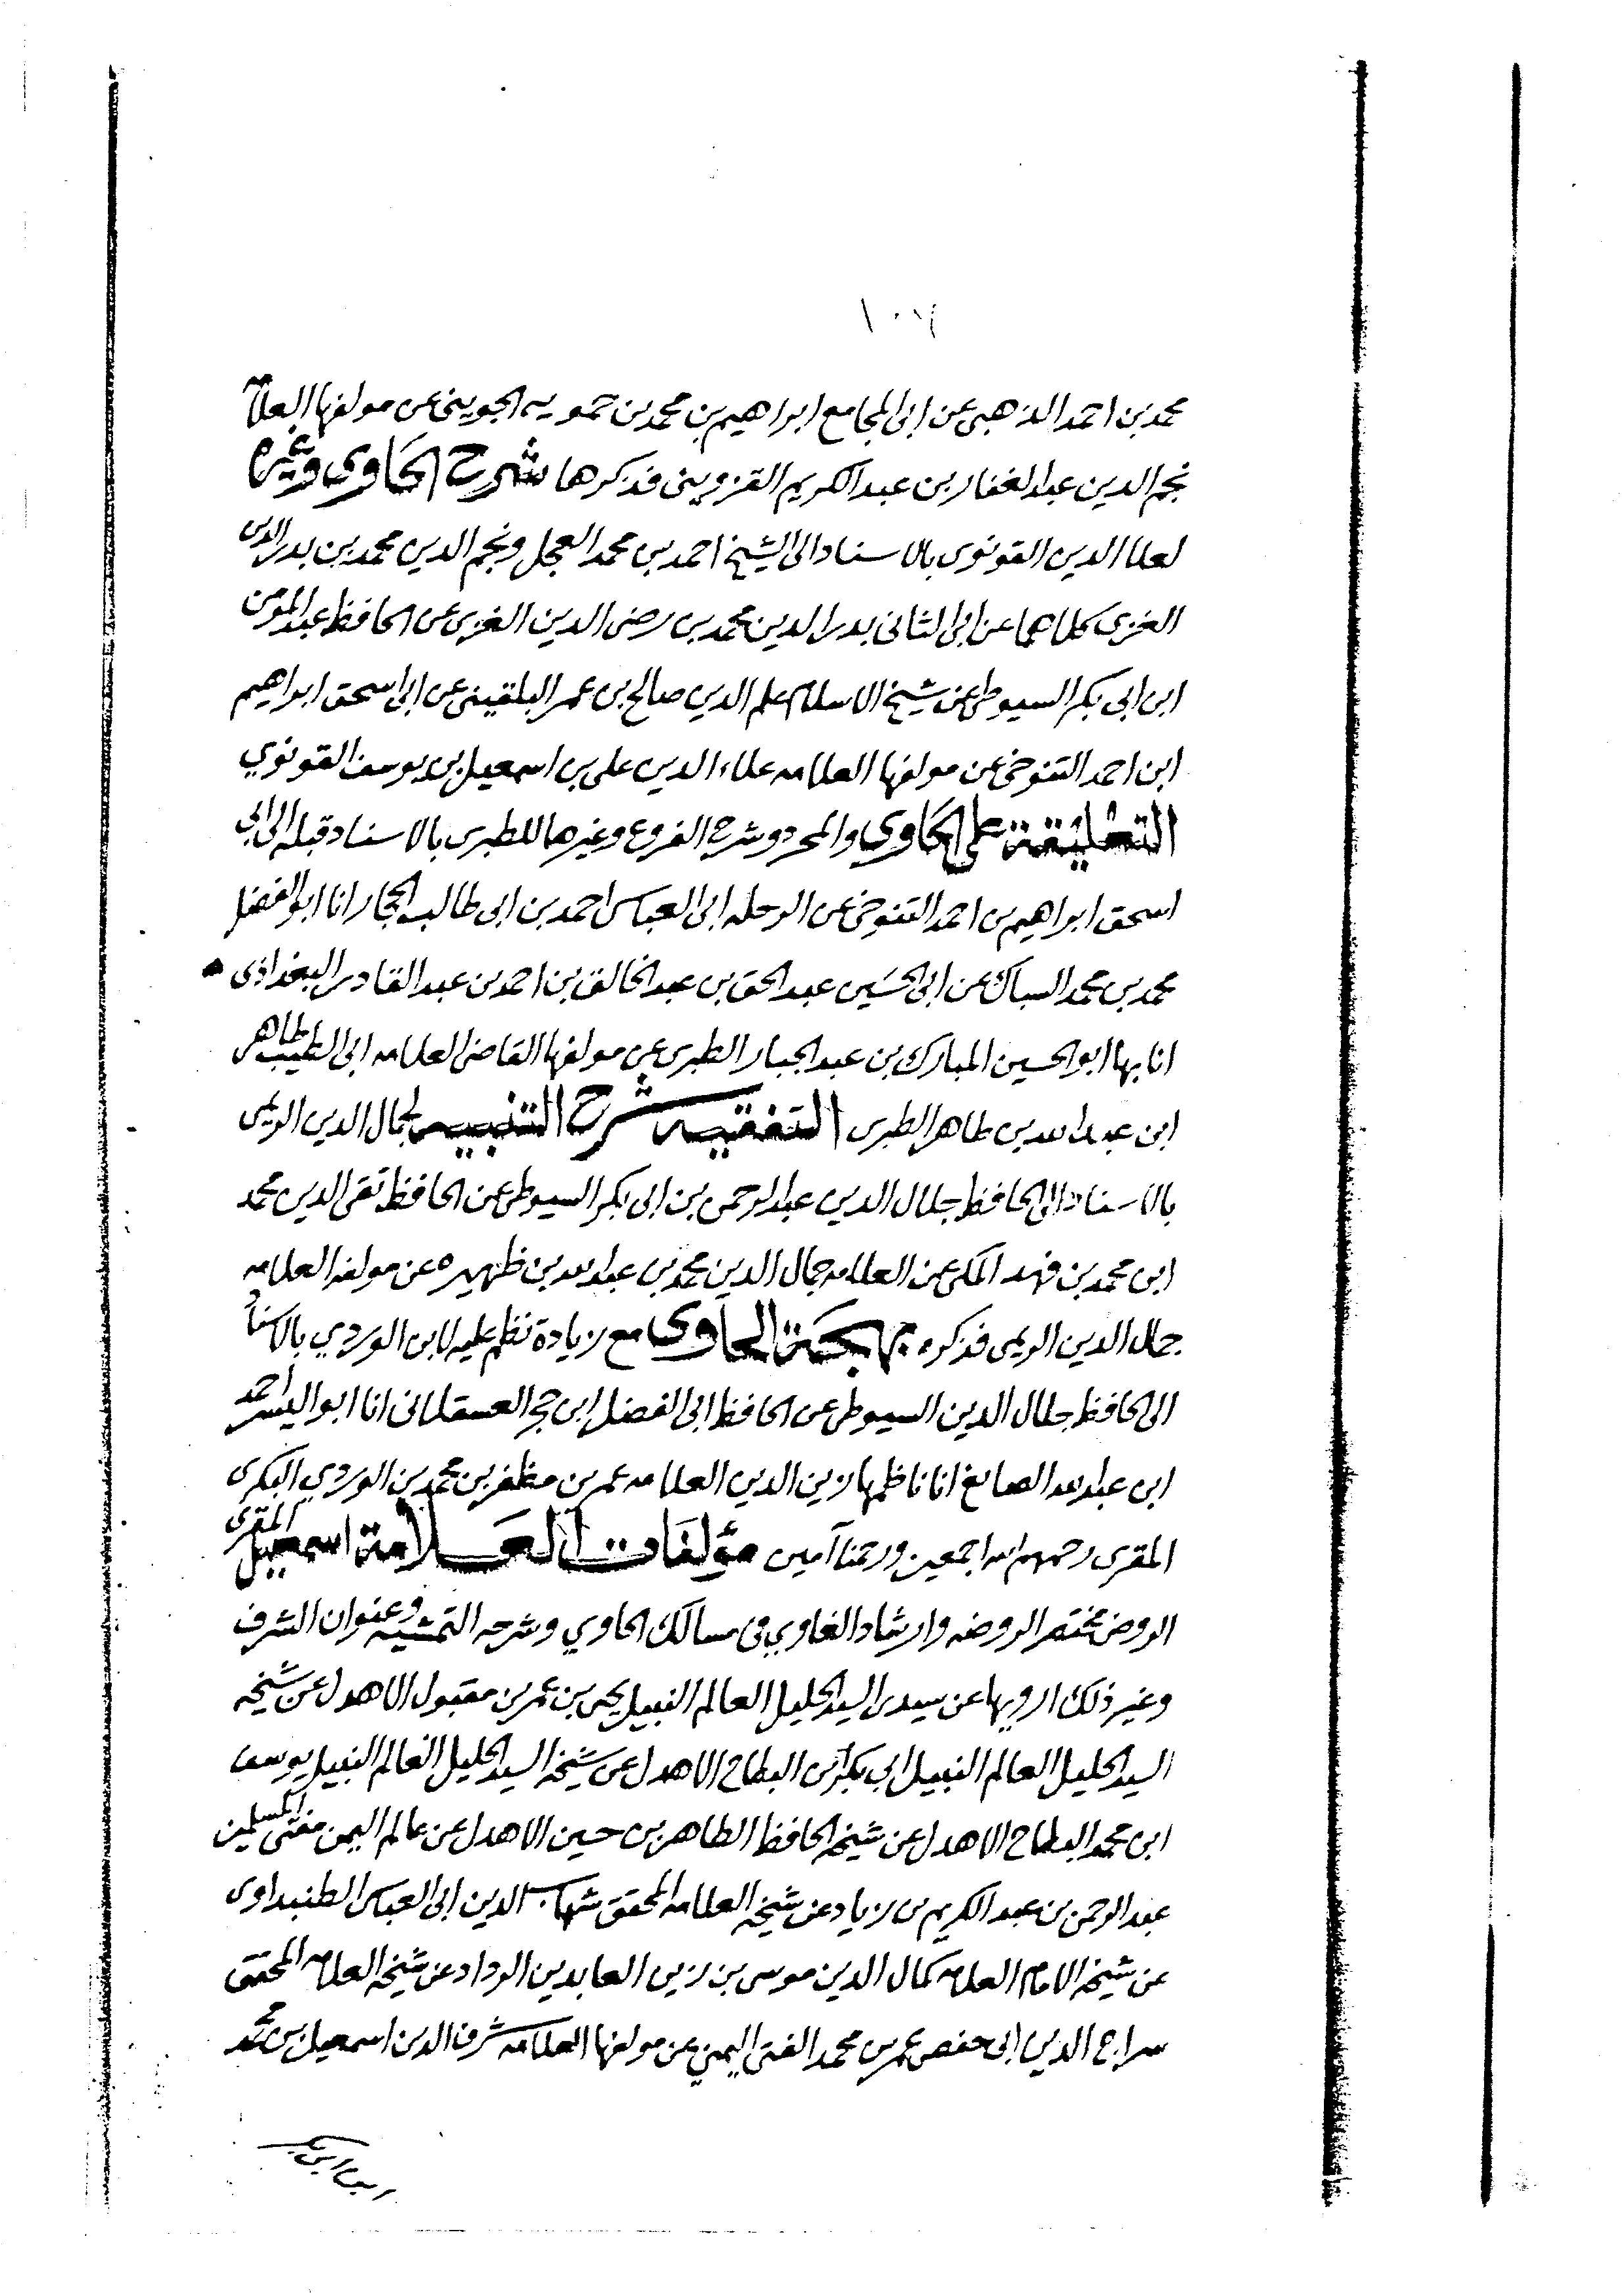 ١٠٦
محمد بن احمد الذهبي عن ابي المجامع ابراهيم بن محمد بن حمويه الجويني عن مولفها العلامة
نجم الدين عبد الغفار بن عبد الكريم القزويني فذكرها شرح الحاوي وغيره
لعلا الدين القونوي بالاسناد الى الشيخ احمد بن محمد العجل ونجم الدين محمد بن بدر الدين
الغزي كلاهما عن ابي الثاني بدر الدين محمد بن رضي الدين الغزي عن الحافظ عبد الرحمن
ابن ابي بكر السيوطي عن شيخ الاسلام علم الدين صالح بن عمر البلقيني عن ابي اسحق ابراهيم
ابن احمد التنوخي عن مولفها العلامه علاء الدين علي بن اسمعيل بن يوسف القونوي
التعليقة على الحاوي والمجرد وشرح الفروع وغيرها للطبري بالاسناد قبله الى ابي
اسحق ابراهيم بن احمد التنوخي عن الرحله ابي العباس احمد بن ابي طالب الحجار انا ابو الفضل
محمد بن محمد السباك عن ابي الحسين عبد الحق بن عبد الخالق بن احمد بن عبد القادر البغدادي
انا بها ابو الحسين المبارك بن عبد الجبار الطبري عن مولفها القاضي العلامه ابي الطيب طاهر
ابن عبد الله بن طاهر الطبري التفقيه شرح التنبيه لجمال الدين الريمي
بالاسناد الى الحافظ جلال الدين عبد الرحمن بن ابي بكر السيوطي عن الحافظ تقي الدين محمد
ابن محمد بن فهد المكي عن العلامه جمال الدين محمد بن عبد الله بن ظهيره عن مولفه العلامه
جمال الدين الريمي فذكره بهجة الحاوي مع زيادة نظم عليه لابن الوردي بالاسناد
الى الحافظ جلال الدين السيوطي عن الحافظ ابي الفضل ابن حجر العسقلاني انا ابو اليسر احمد
ابن عبد الله الصايغ انا ناظمها زين الدين العلامه عمر بن مظفر بن محمد بن الوردي البكري
المقري رحمهم الله اجمعين ورحمنا آمين مؤلفات العلامة اسمعيل المقري
الروض مختصر الروضه وارشاد الغاوي في مسالك الحاوي وشرحه التمشيه وعنوان الشرف
وغير ذلك ارويها عن سيدي السيد الجليل العالم النبيل يحيى بن عمر بن مقبول الاهدل عن شيخه
السيد الجليل العالم النبيل ابي بكر بن البطاح الاهدل عن شيخه السيد الجليل العالم النبيل يوسف
ابن محمد البطاح الاهدل عن شيخه الحافظ الطاهر بن حسين الاهدل عن عالم اليمن مفتي المسلمين
عبد الرحمن بن عبد الكريم بن زياد عن شيخه العلامه المحقق شهاب الدين ابي العباس الطنبداوي
عن شيخه الامام العلامه كمال الدين موسى بن زين العابدين الرداد عن شيخه العلامه المحقق
سراج الدين ابي حفص عمر بن محمد الفتى اليمني عن مولفها العلامه شرف الدين اسمعيل بن محمد
ابن ابي بكر